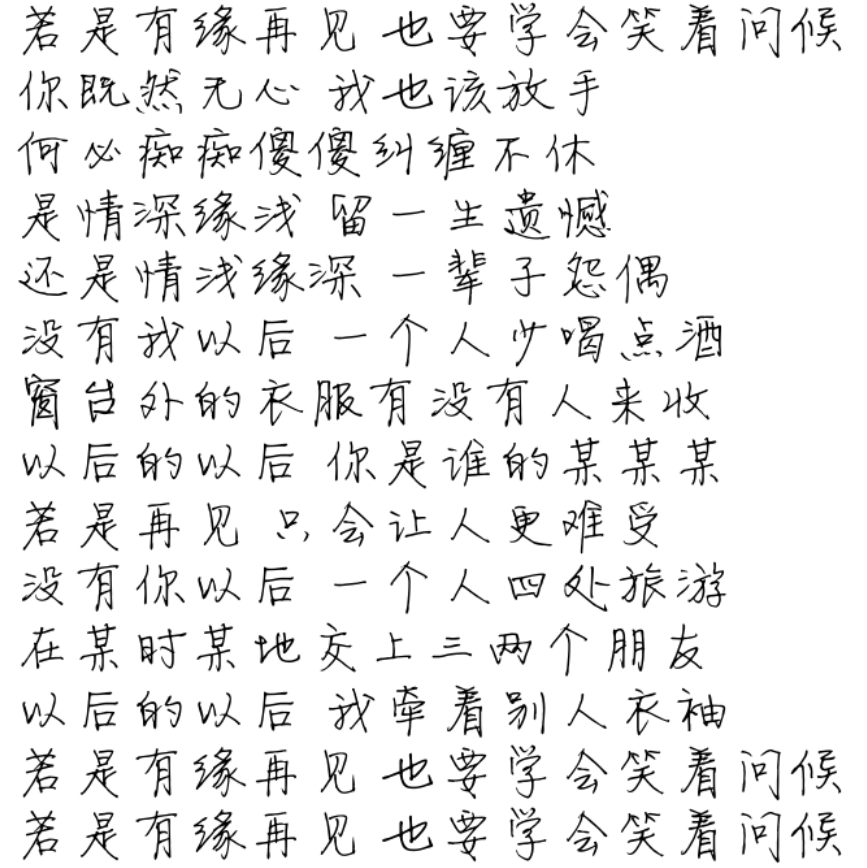 若是有缘再见 也要学会笑着问候
你既然无心 我也该放手
何必痴痴傻傻纠缠不休
是情深缘浅 留一生遗憾
还是情浅缘深 一辈子怨偶
没有我以后 一个人少喝点酒
窗台外的衣服有没有人来收
以后的以后 你是谁的某某某
若是再见 只会让人更难受
没有你以后 一个人四处旅游
在某时某地交上三两个朋友
以后的以后 我牵着别人衣袖
若是有缘再见 也要学会笑着问候
若是有缘再见 也要学会笑着问候